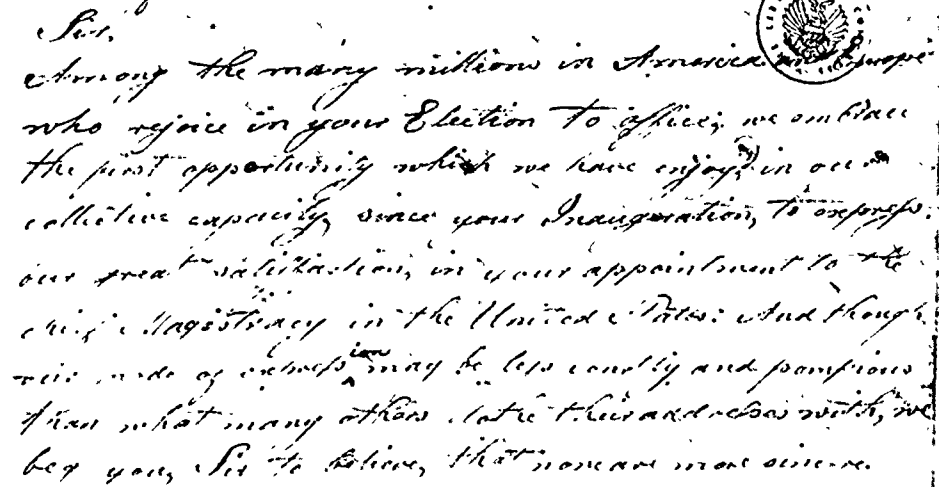 Sir,
Among the many millions in America and Europe
who rejoice in your Election to office; we embrace
the first opportunity which we have enjoyd in our
collective capacity, since your Inauguration, to express
our great satisfaction, in your appointment to the
chief Magistracy in the United States: And though
our mode of expression may be less courtly and pompious
than what many others clothe their addresses with, we
beg you, Sir to believe, that none are more sincere.